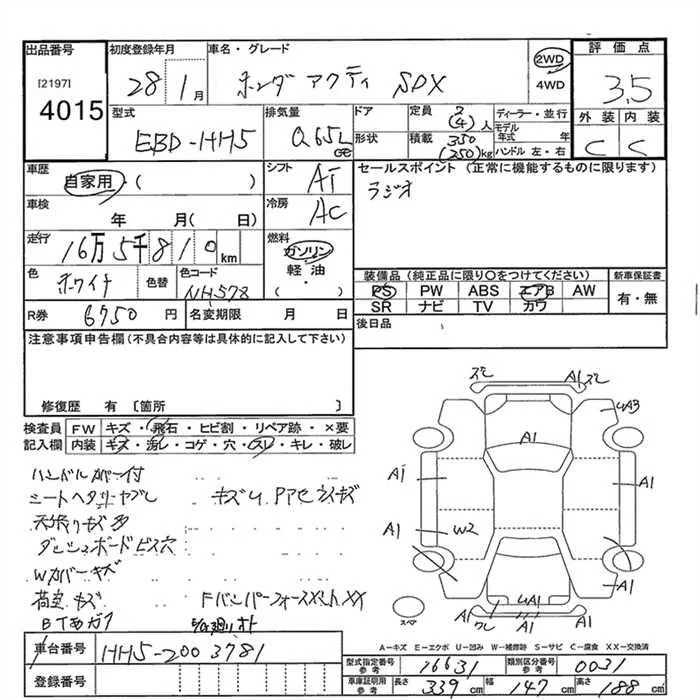 出品番号 [2197] 4015
初度登録年月 28年1月
車名・グレード ホンダ アクティ SDX
2WD
4WD
評価点 3.5
外装 C 内装 C
型式 EBD-HH5
排気量 0.65L
ドア
形状
定員 2(4)人
積載 350(250)kg
ディーラー・並行
モデル年式 年
ハンドル 左・右
車歴 自家用・( )
シフト AT
セールスポイント(正常に機能するものに限ります)
ラジオ
車検 年 月( 日)
冷房 AC
走行 16万5千810km
燃料 ガソリン
軽油
( ・ )
色 ホワイト 色替 色コード NH578
装備品(純正品に限り○をつけてください)
新車保証書
PS PW ABS エアB AW
SR ナビ TV カワ
有・無
R券 6750円 名変期限 月 日
後日品
注意事項申告欄(不具合内容等は具体的に記入して下さい)
修復歴 有〔箇所 〕
検査員記入欄
FW キズ・飛石・ヒビ割・リペア跡・×要
内装 キズ・汚レ・コゲ・穴・スレ・キレ・破レ
ハンドルカバー付
シートヘタリヤブレ
天張りキズ多
ダッシュボードビス穴
Wカバーキズ
荷室キズ
A1
A1
UA3
A1
A1
A1
A1
W2
A1
A1
UA1
A1
スペア
A-キズ E-エクボ U-凹み W-補修跡 S-サビ C-腐食 XX-交換済
車台番号 HH5-2003781
登録番号
型式指定番号参考 16631 類別区分番号参考 0031
車庫証明用参考 長さ 339cm 幅 147cm 高さ 188cm